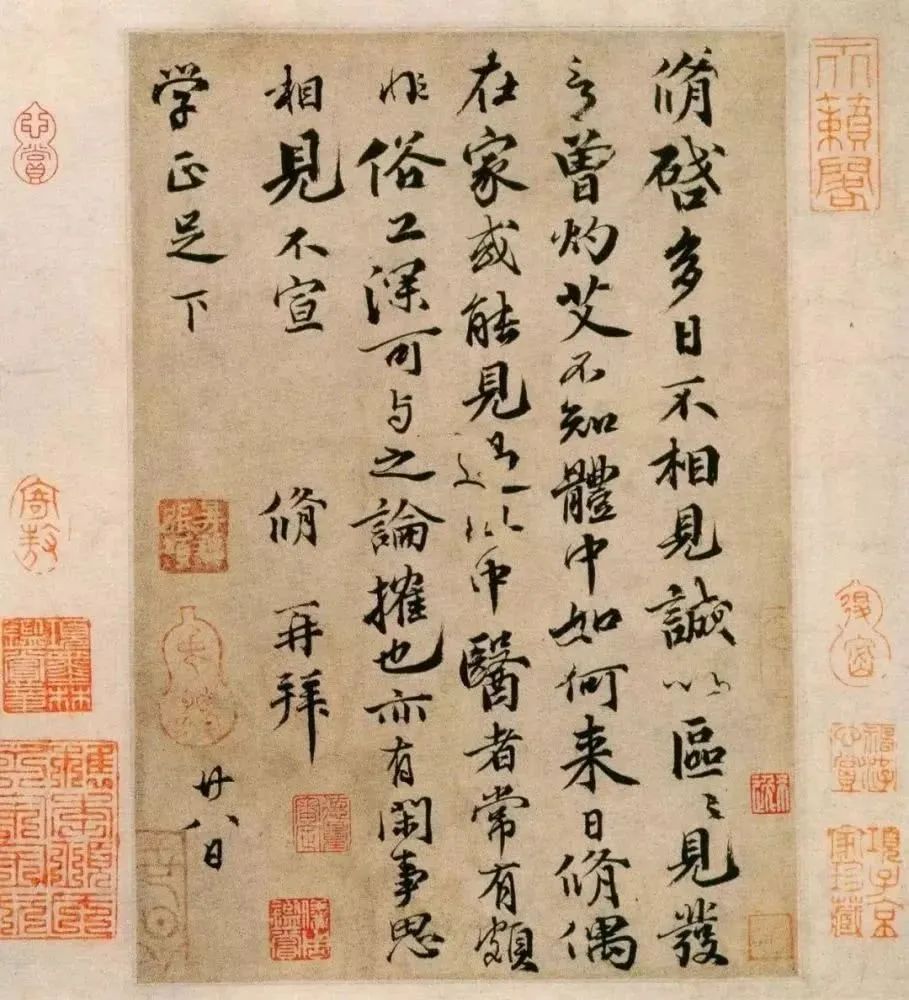 脩啓多日不相見誠以區〻見發
言曾灼艾不知體中如何来日脩偶
在家或能見過此中醫者常有頗
非俗工深可与之論搉也亦有閑事思
相見不宣 脩 再拜
廿八日
学正足下
天籟閣
項子京家珍藏